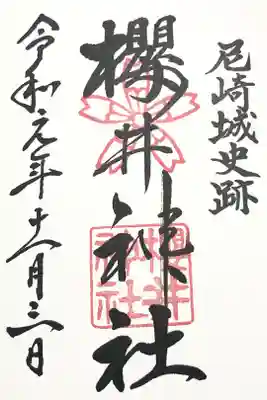 尼崎城史跡
櫻井神社
櫻井神社
令和元年十一月三日